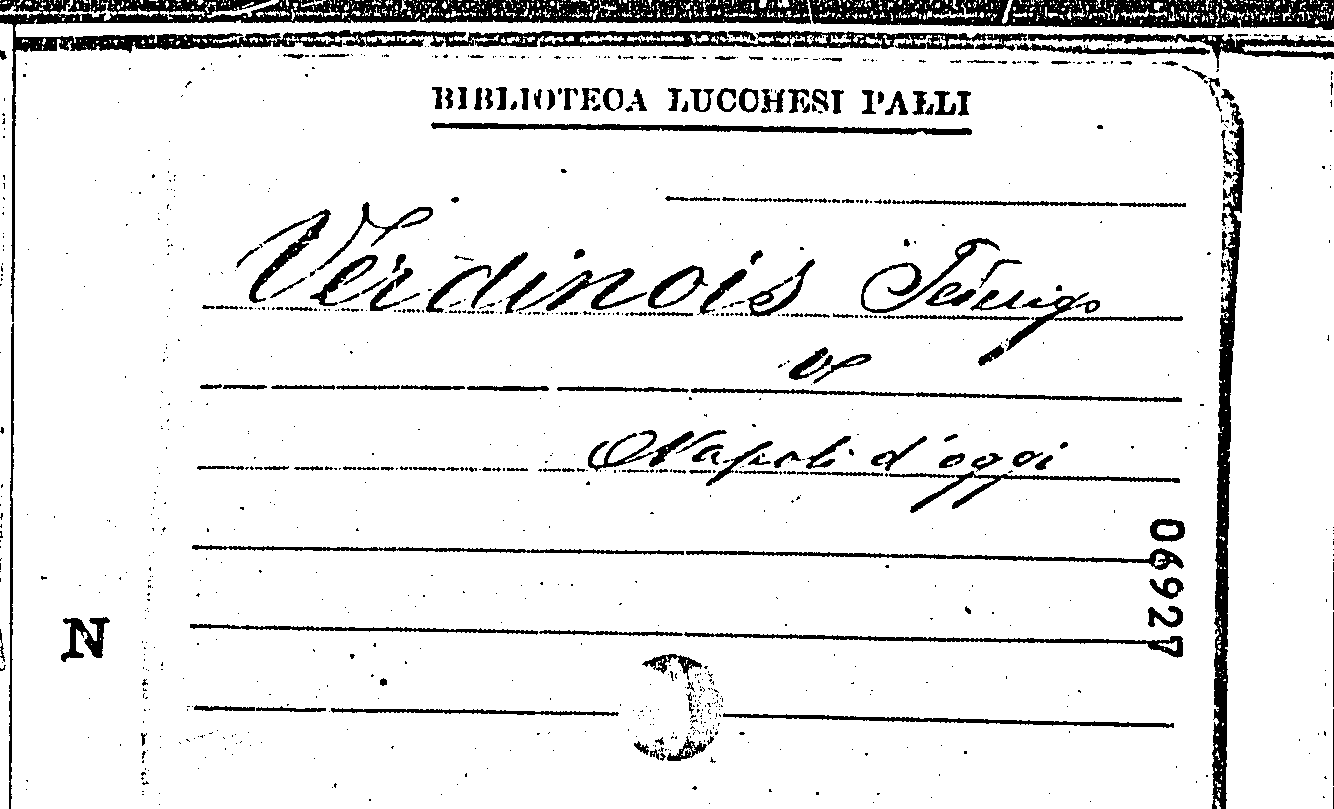 BIBLIOTECA LUCCHESI PALLI
Verdinois Federigo
V.
Napoli d'oggi
06927
N